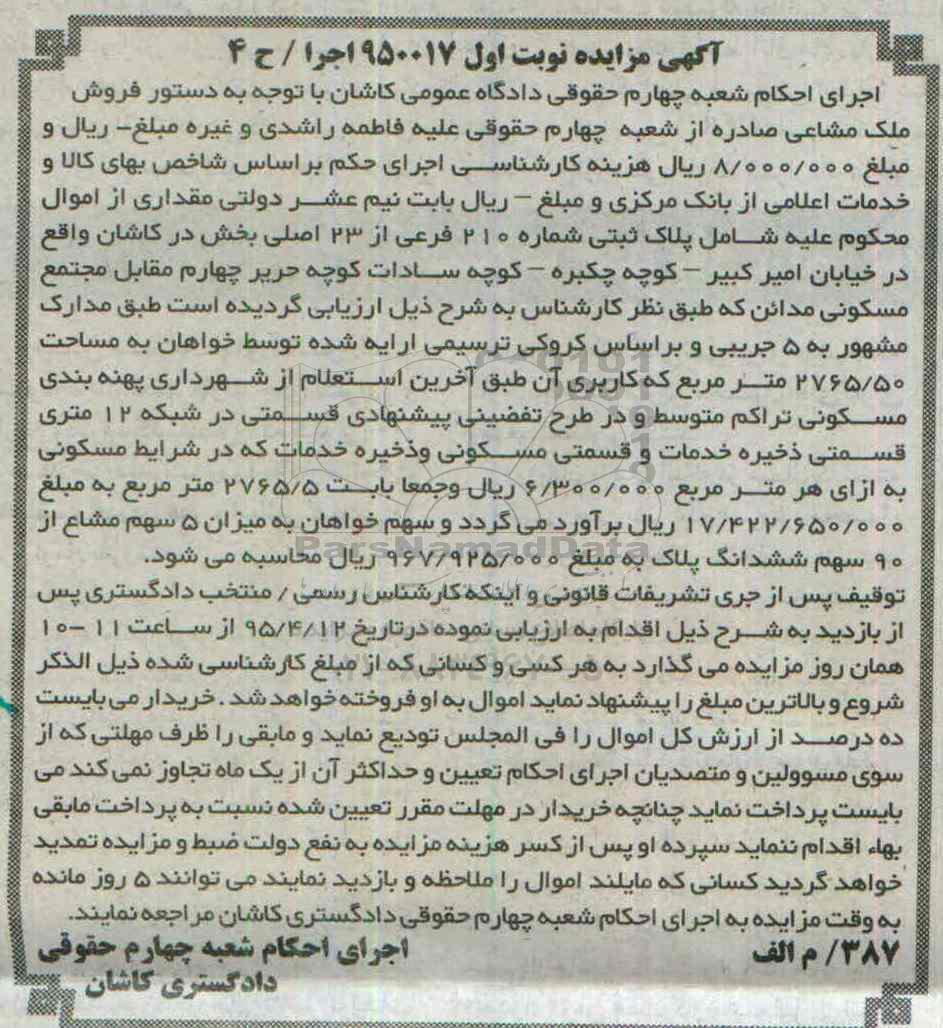 آگهی مزایده نوبت اول ۹۵۰۰۱۷ اجرا / ح ۴
اجرای احکام شعبه چهارم حقوقی دادگاه عمومی کاشان با توجه به دستور فروش
ملک مشاعی صادره از شعبه چهارم حقوقی علیه فاطمه راشدی و غیره مبلغ– ریال و
مبلغ ۸/۰۰۰/۰۰۰ ریال هزینه کارشناسی اجرای حکم براساس شاخص بهای کالا و
خدمات اعلامی از بانک مرکزی و مبلغ – ریال بابت نیم عشر دولتی مقداری از اموال
محکوم علیه شامل پلاک ثبتی شماره ۲۱۰ فرعی از ۲۳ اصلی بخش در کاشان واقع
در خیابان امیر کبیر – کوچه چکبره – کوچه سادات کوچه حریر چهارم مقابل مجتمع
مسکونی مدائن که طبق نظر کارشناس به شرح ذیل ارزیابی گردیده است طبق مدارک
مشهور به ۵ جریبی و براساس کروکی ترسیمی ارایه شده توسط خواهان به مساحت
۲۷۶۵/۵۰ متر مربع که کاربری آن طبق آخرین استعلام از شهرداری پهنه بندی
مسکونی تراکم متوسط و در طرح تفضینی پیشنهادی قسمتی در شبکه ۱۲ متری
قسمتی ذخیره خدمات و قسمتی مسکونی وذخیره خدمات که در شرایط مسکونی
به ازای هر متر مربع ۶/۳۰۰/۰۰۰ ریال وجمعا بابت ۲۷۶۵/۵ متر مربع به مبلغ
۱۷/۴۲۲/۶۵۰/۰۰۰ ریال برآورد می گردد و سهم خواهان به میزان ۵ سهم مشاع از
۹۰ سهم ششدانگ پلاک به مبلغ ۹۶۷/۹۲۵/۰۰۰ ریال محاسبه می شود.
توقیف پس از جری تشریفات قانونی و اینکه کارشناس رسمی / منتخب دادگستری پس
از بازدید به شرح ذیل اقدام به ارزیابی نموده درتاریخ ۹۵/۴/۱۲ از ساعت ۱۱ -۱۰
همان روز مزایده می گذارد به هر کسی و کسانی که از مبلغ کارشناسی شده ذیل الذکر
شروع و بالاترین مبلغ را پیشنهاد نماید اموال به او فروخته خواهد شد . خریدار می بایست
ده درصد از ارزش کل اموال را فی المجلس تودیع نماید و مابقی را ظرف مهلتی که از
سوی مسوولین و متصدیان اجرای احکام تعیین و حداکثر آن از یک ماه تجاوز نمی کند می
بایست پرداخت نماید چنانچه خریدار در مهلت مقرر تعیین شده نسبت به پرداخت مابقی
بهاء اقدام ننماید سپرده او پس از کسر هزینه مزایده به نفع دولت ضبط و مزایده تمدید
خواهد گردید کسانی که مایلند اموال را ملاحظه و بازدید نمایند می توانند ۵ روز مانده
به وقت مزایده به اجرای احکام شعبه چهارم حقوقی دادگستری کاشان مراجعه نمایند.
۳۸۷/ م الف
اجرای احکام شعبه چهارم حقوقی
دادگستری کاشان
ParsNamadData